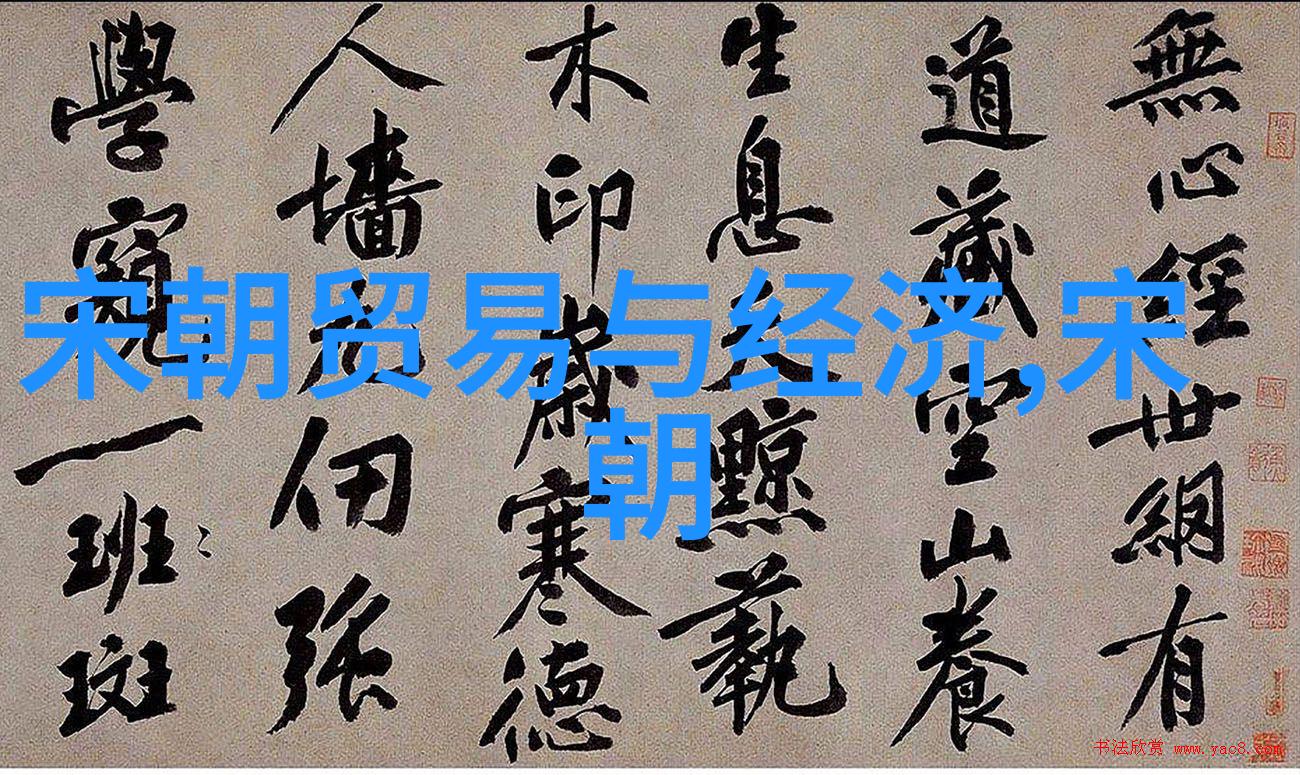 宋朝贸易与经济,宋
朝
無心經世網有
道藏空山養
生息天黥蓺
木印歲寒德
人墻九仞張
學窺一班〻
斑
书法欣赏 www.yac8.com